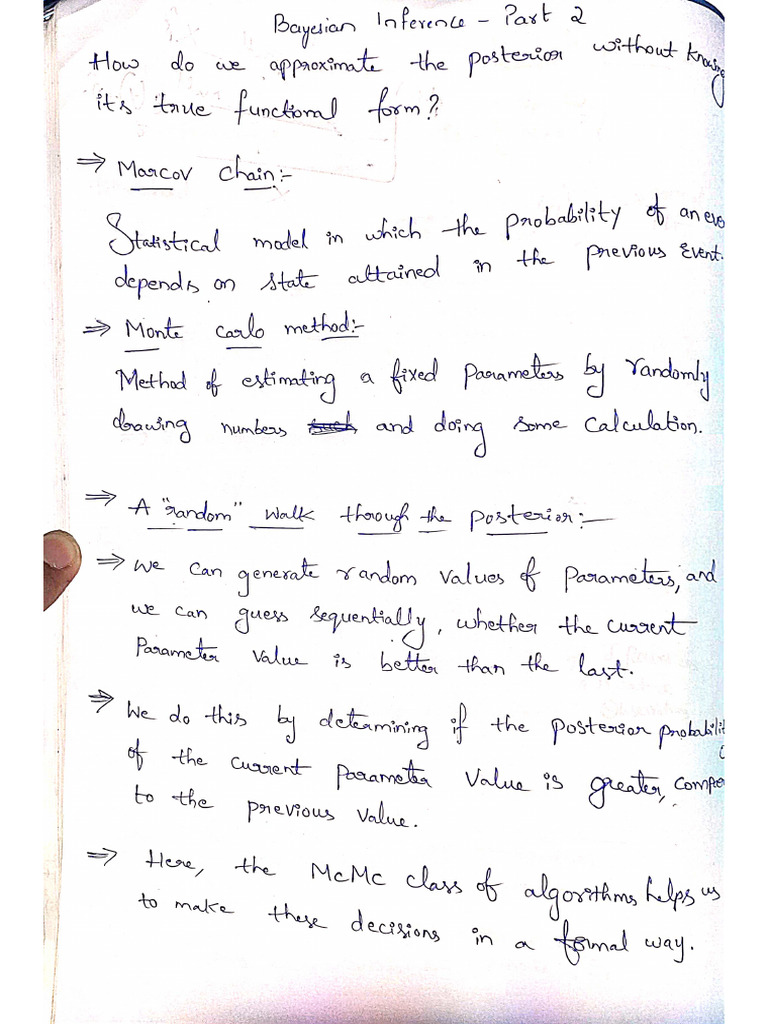 Bayesian Inference - Part 2
How do we approximate the posterior without
it's true functional form?
⇒ Marcov chain:-
Statistical model in which the probability of an
depends on state attained in the previous Event.
⇒ Monte carlo method:-
Method of estimating a fixed parameters by randomly
drawing numbers and doing some calculation.
⇒ A "random" walk through the posterior:-
⇒ We can generate random values of parameters, and
we can guess sequentially, whether the current
Parameter value is better than the last.
⇒ We do this by determining if the posterior
of the current parameter value is greater,
to the previous value.
⇒ Here, the McMc class of algorithms helps us
to make these decisions in a formal way.